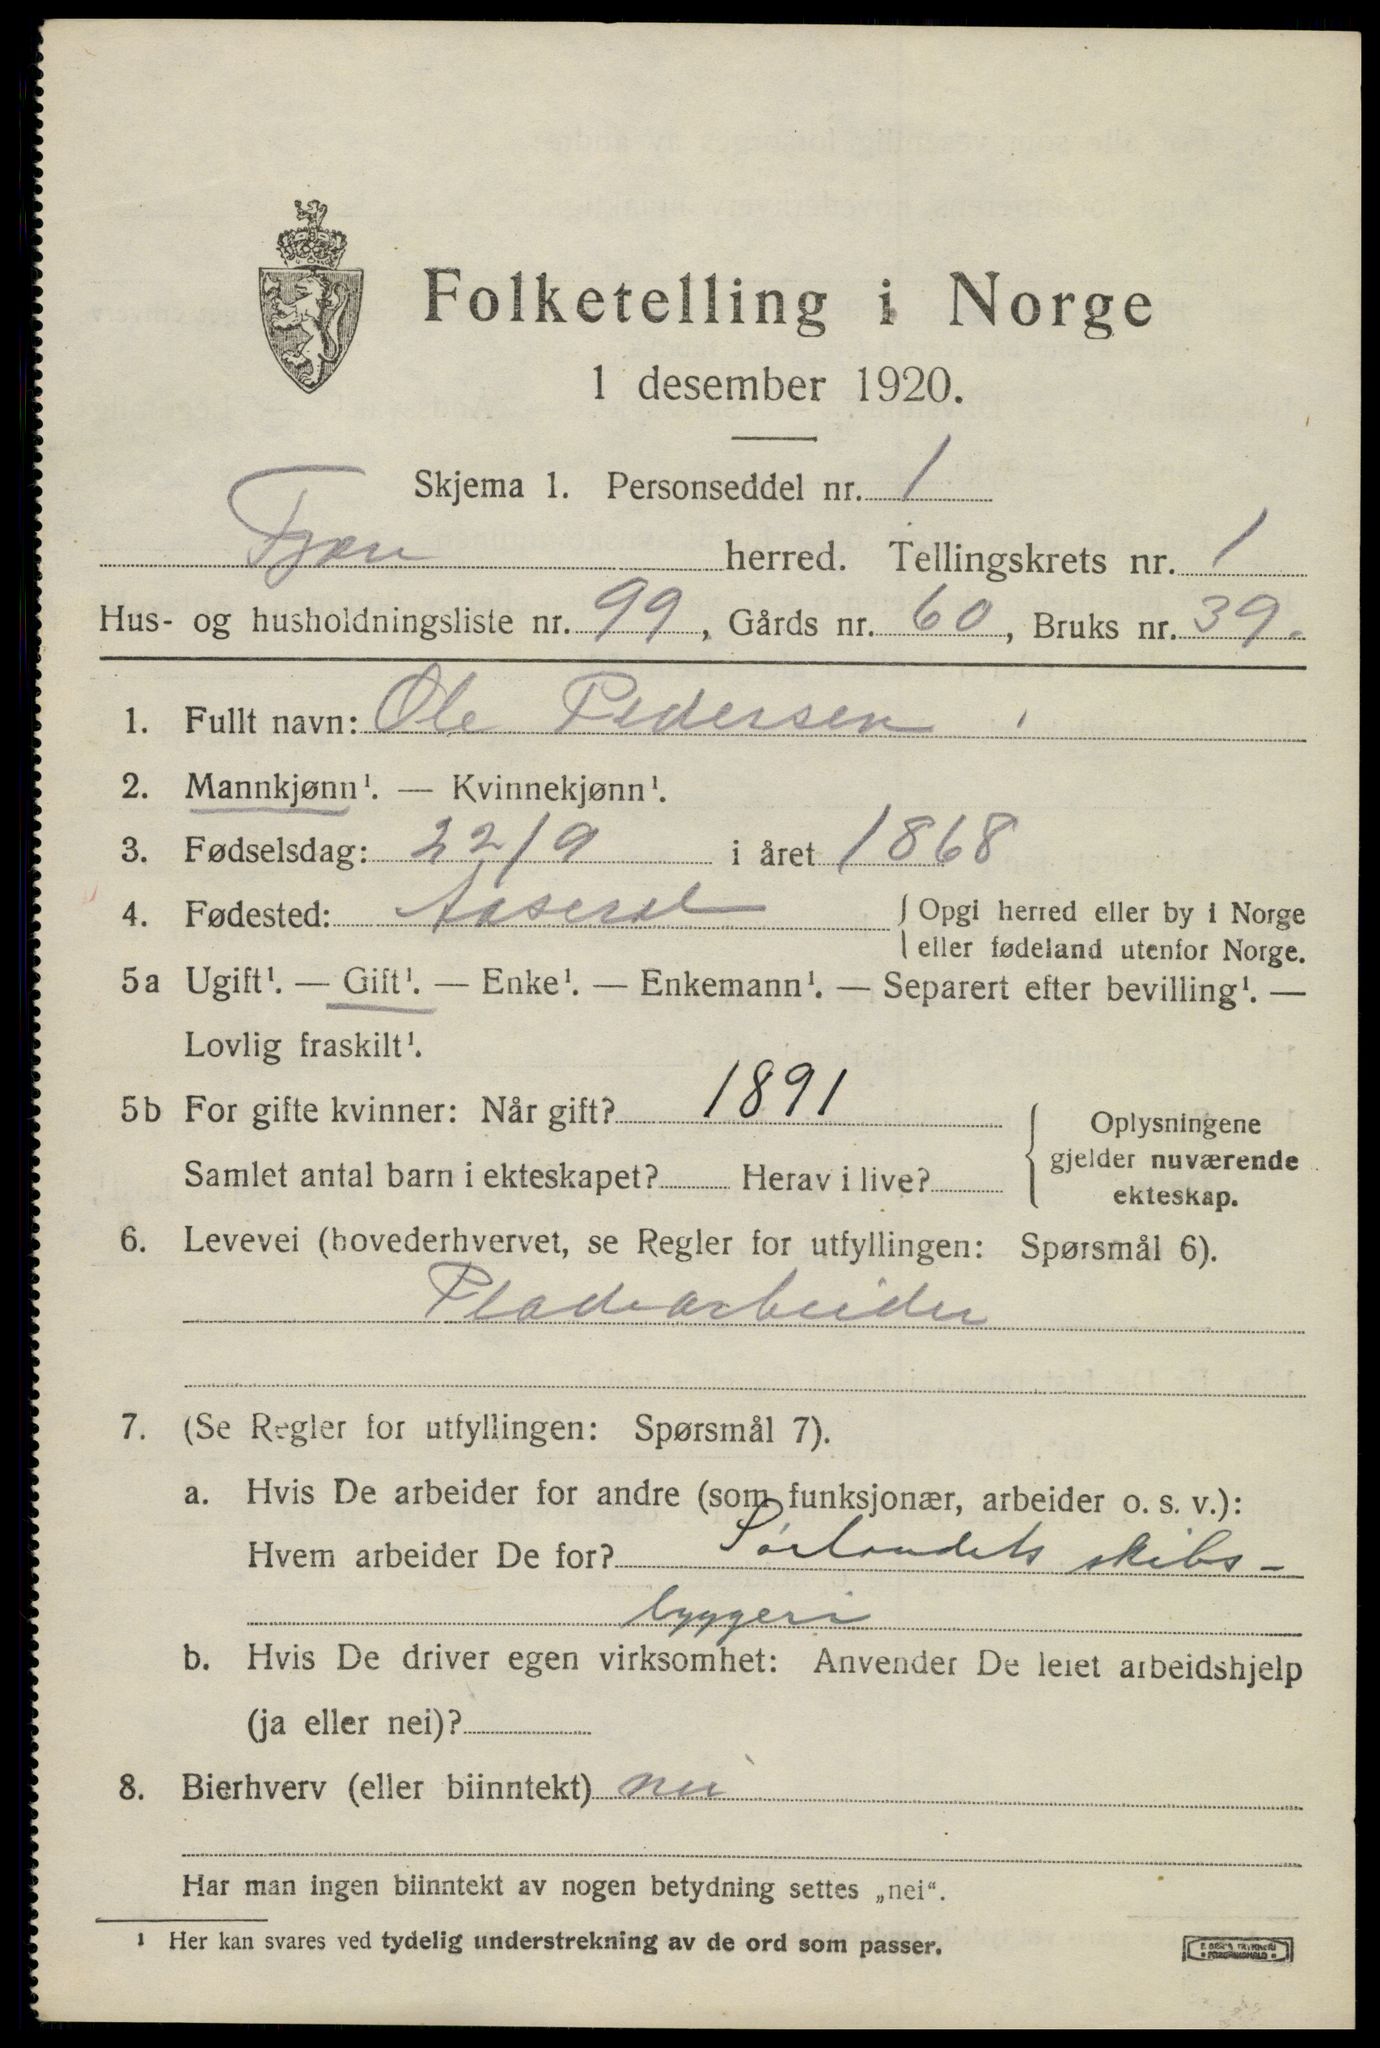 Folketelling i Norge
1 desember 1920.
Skjema 1. Personseddel nr. 1
Fjære herred. Tellingskrets nr. 1
Hus- og husholdningsliste nr. 99, Gårds nr. 60, Bruks nr. 39.
1. Fullt navn: Ole Pedersen
2. Mannkjønn¹. — Kvinnekjønn¹.
3. Fødselsdag: 22/9 i året 1868
4. Fødested: Aaseral { Opgi herred eller by i Norge
eller fødeland utenfor Norge.
5a Ugift¹. — Gift¹. — Enke¹. — Enkemann¹. — Separert efter bevilling¹. —
Lovlig fraskilt¹.
5b For gifte kvinner: Når gift? 1891
Samlet antal barn i ekteskapet? Herav i live?
{ Oplysningene
gjelder nuværende
ekteskap.
6. Levevei (hovederhvervet, se Regler for utfyllingen: Spørsmål 6).
Pladearbeider
7. (Se Regler for utfyllingen: Spørsmål 7).
a. Hvis De arbeider for andre (som funksjonær, arbeider o. s. v.):
Hvem arbeider De for? Sørlandets skibs-
byggeri
b. Hvis De driver egen virksomhet: Anvender De leiet arbeidshjelp
(ja eller nei)?
8. Bierhverv (eller biinntekt) nei
Har man ingen biinntekt av nogen betydning settes „nei“.
¹ Her kan svares ved tydelig understrekning av de ord som passer.